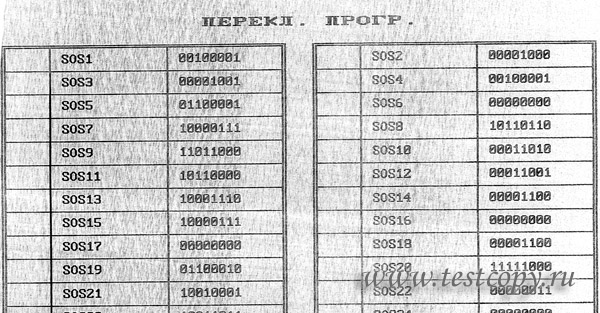 ПЕРЕКЛ. ПРОГР.
SOS1 00100001 SOS2 00001000
SOS3 00001001 SOS4 00100001
SOS5 01100001 SOS6 00000000
SOS7 10000111 SOS8 10110110
SOS9 11011000 SOS10 00011010
SOS11 10110000 SOS12 00011001
SOS13 10001110 SOS14 00001100
SOS15 10000111 SOS16 00000000
SOS17 00000000 SOS18 00001100
SOS19 01100010 SOS20 11111000
SOS21 10010001 SOS22
www.testcopy.ru